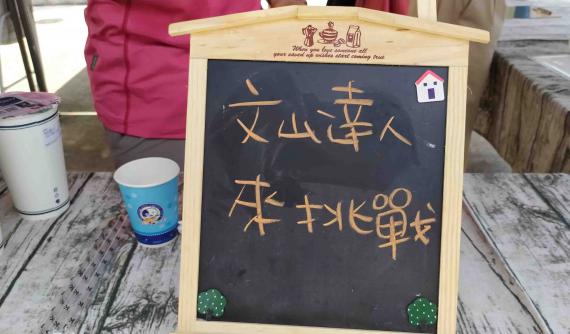 When you love someone all
your saved up wishes start coming true
文山達人
來挑戰